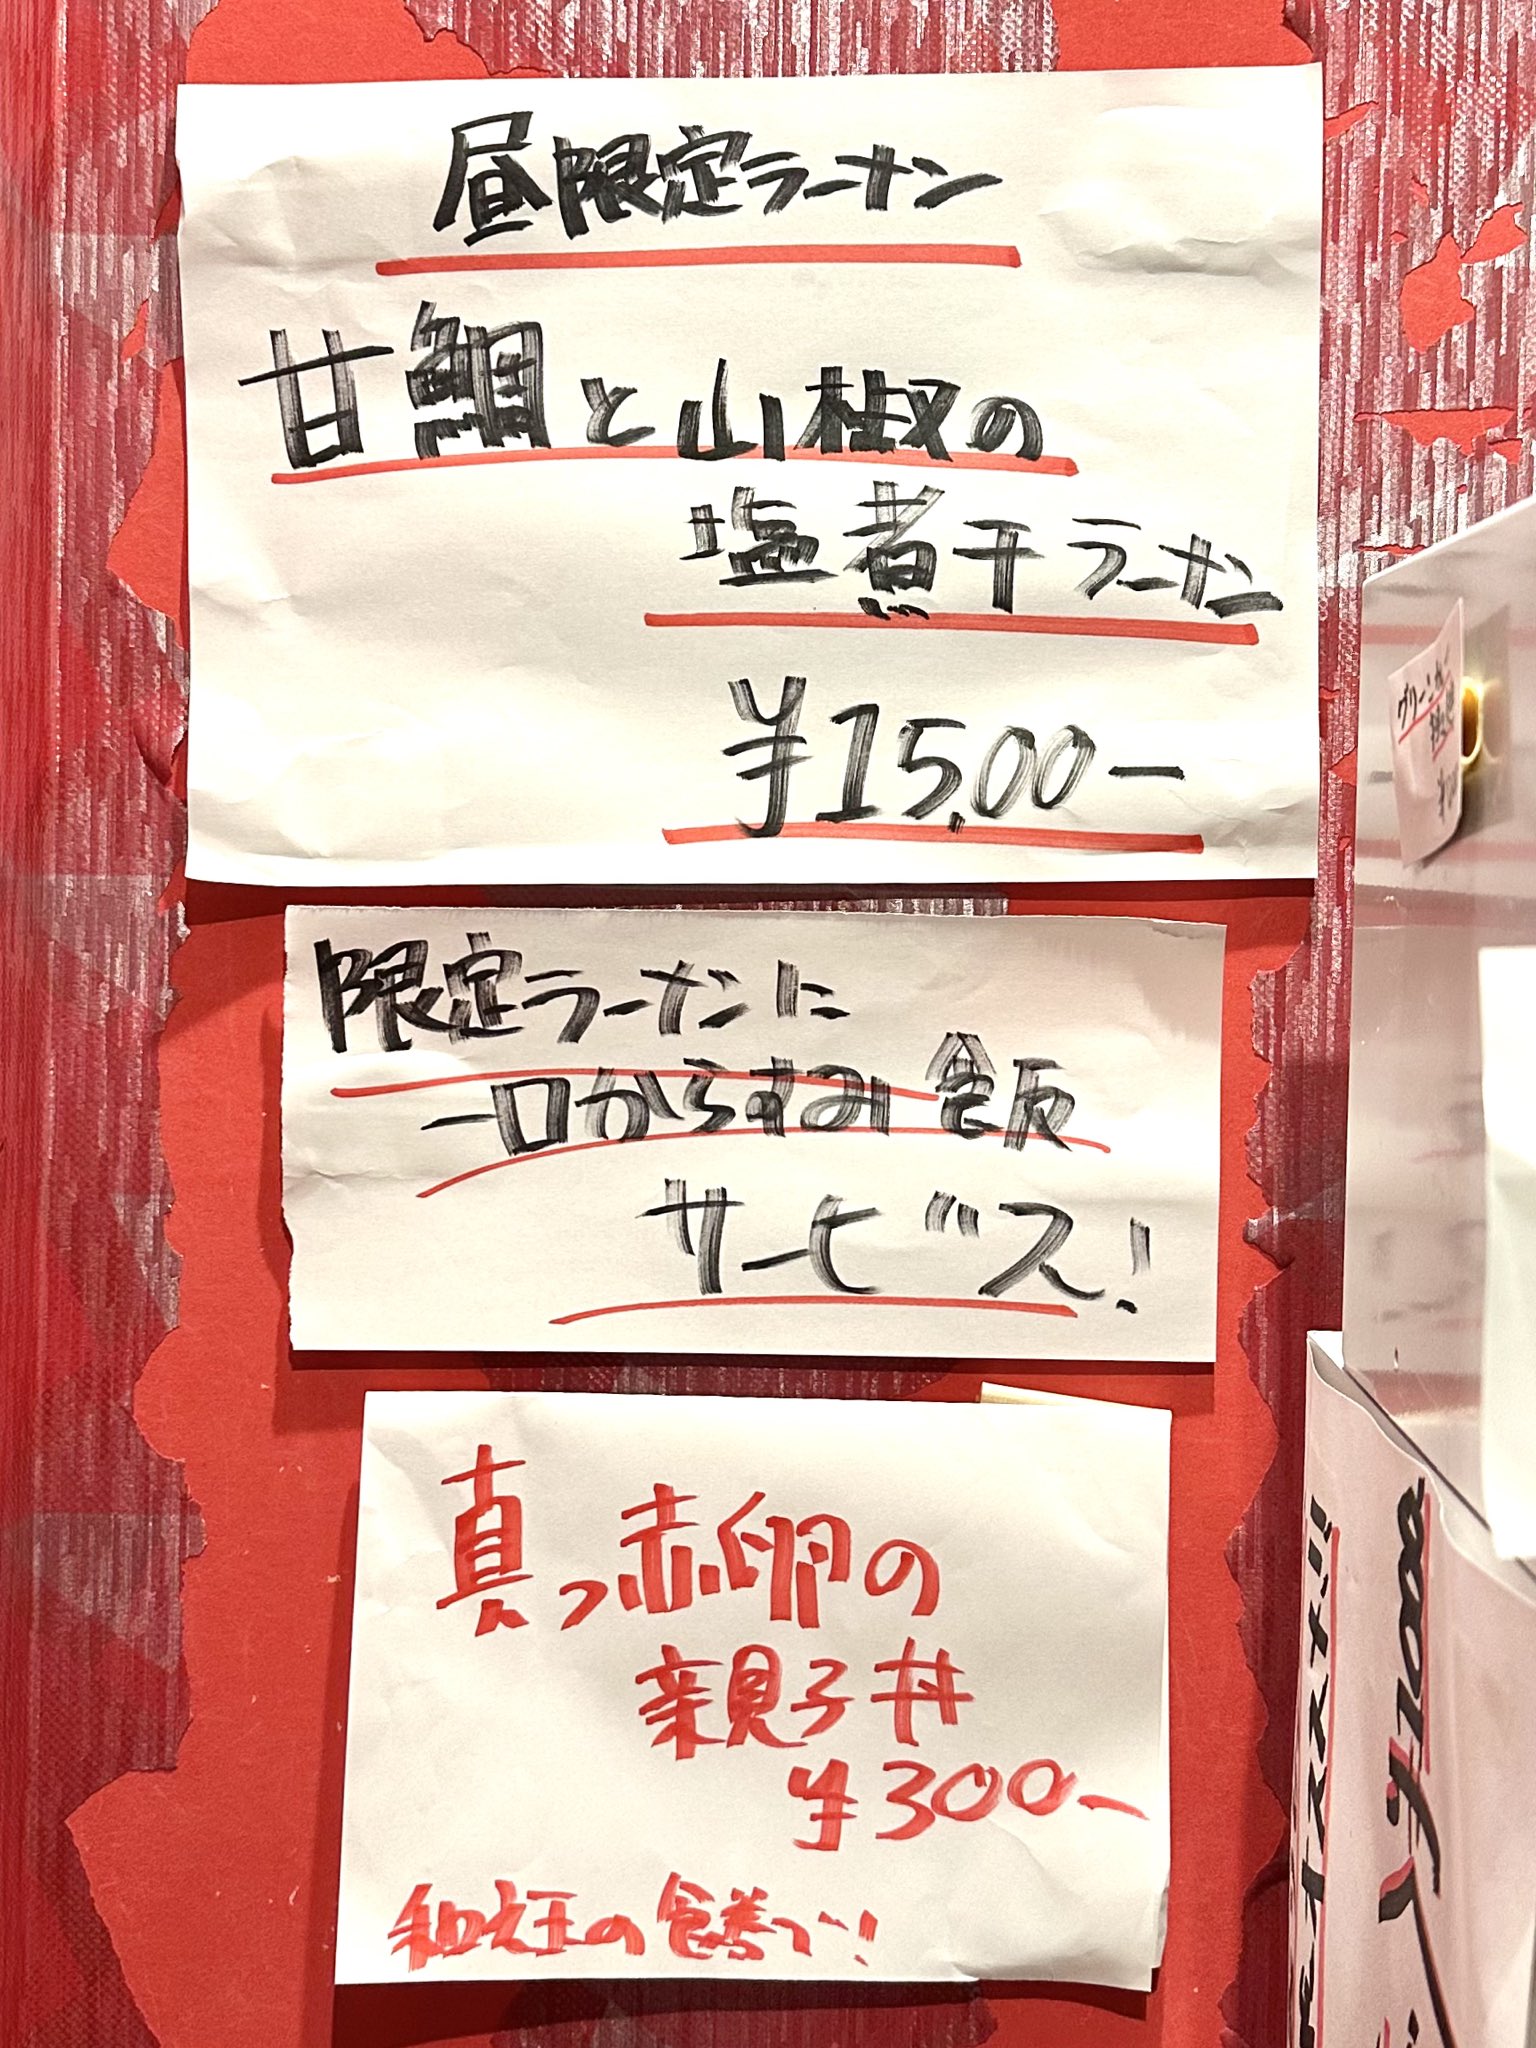 昼限定ラーメン
甘鯛と山椒の
塩煮干ラーメン
¥1500ー
限定ラーメンに
一口からすみ飯
サービス!
真っ赤卵の
親子丼
¥300ー
の食券で!
¥1000